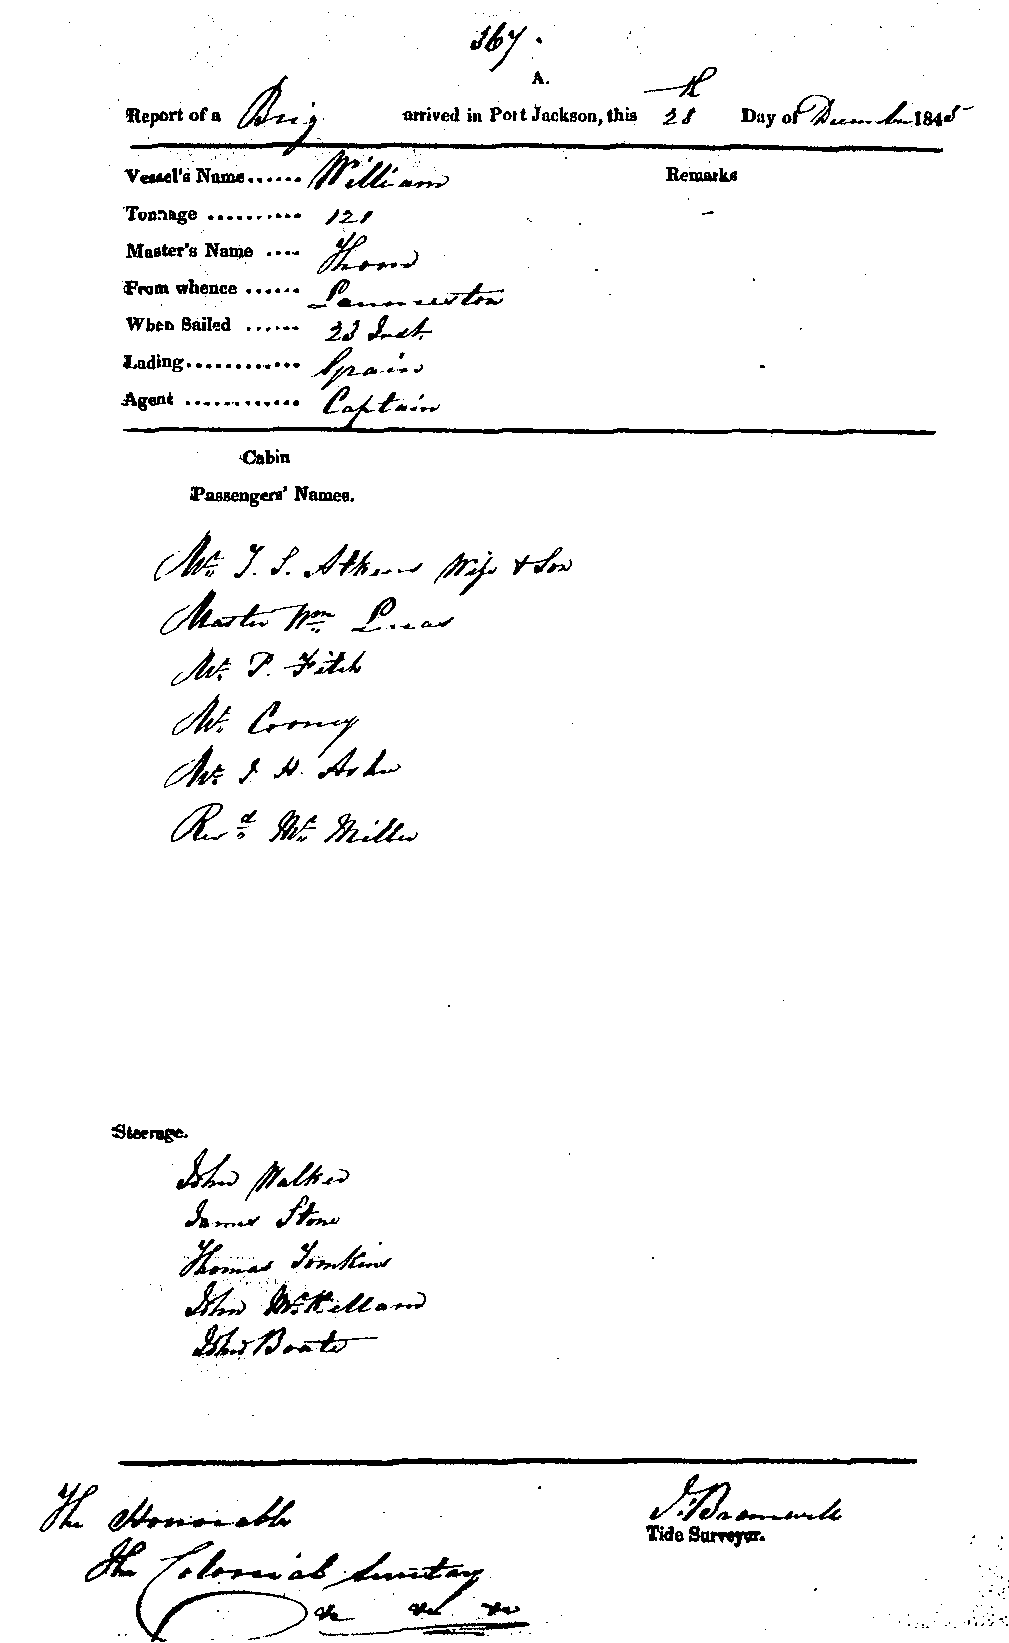 367.
A.
Report of a Brig arrived in Port Jackson, this 28th Day of December 1845
Vessel's Name...... William Remarks
Tonnage .......... 121 -
Master's Name .... Thom
From whence ...... Launceston
When Sailed ...... 23 Inst.
Lading............ Grain
Agent ............ Captain
Cabin
Passengers' Names.
Mr. T. S. Atkins Wife & Son
Master Wm Lucas
Mr. P. Fitch
Mr. Cooney
Mr. J H. Asher
Revd. Mr. Miller
Steerage.
John Walker
James Stone
Thomas Tomkins
John McKellam
John Boate
The Honorable J. Bramwell
Tide Surveyor.
The Colonial Secretary
&c &c &c